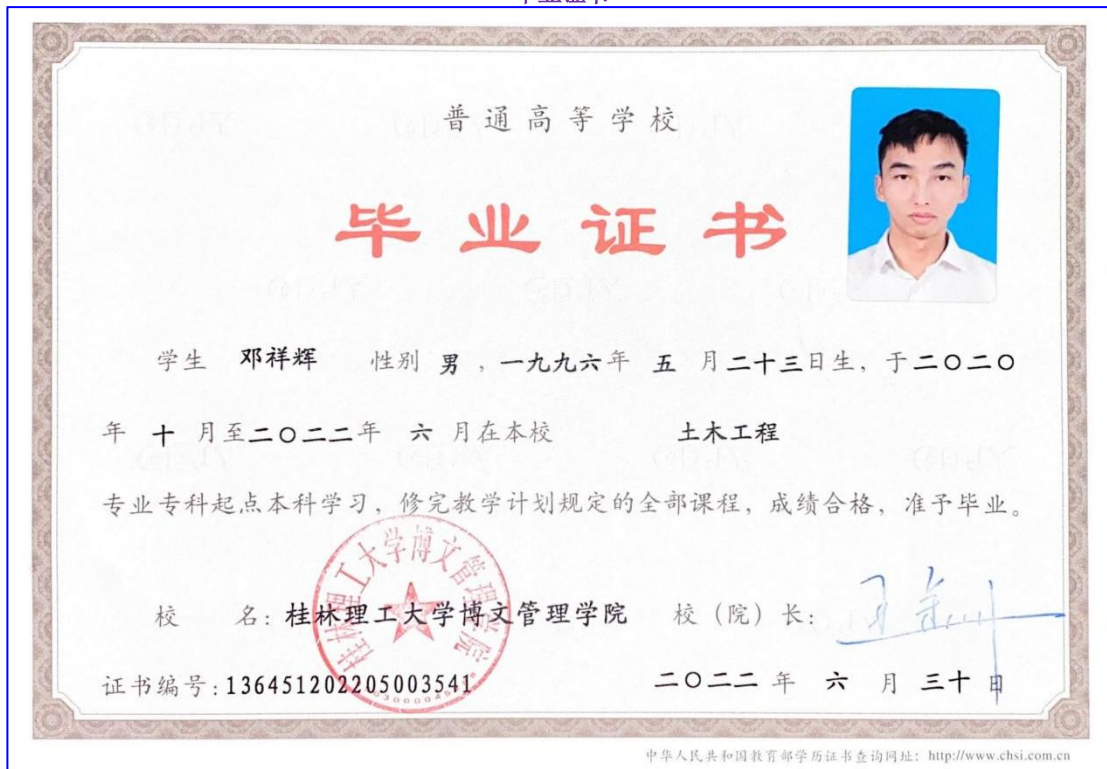 毕业证书
普通高等学校
毕业证书
学生 邓祥辉 性别 男 ,一九九六年 五 月二十三日生, 于二〇二〇
年 十 月至二〇二二年 六 月在本校 土木工程
专业专科起点本科学习, 修完教学计划规定的全部课程, 成绩合格, 准予毕业。
桂林理工大学博文管理学院
校 名: 桂林理工大学博文管理学院 校 (院) 长:
证书编号: 136451202205003541 二〇二二 年 六 月 三十 日
中华人民共和国教育部学历证书查询网址: http://www.chsi.com.cn